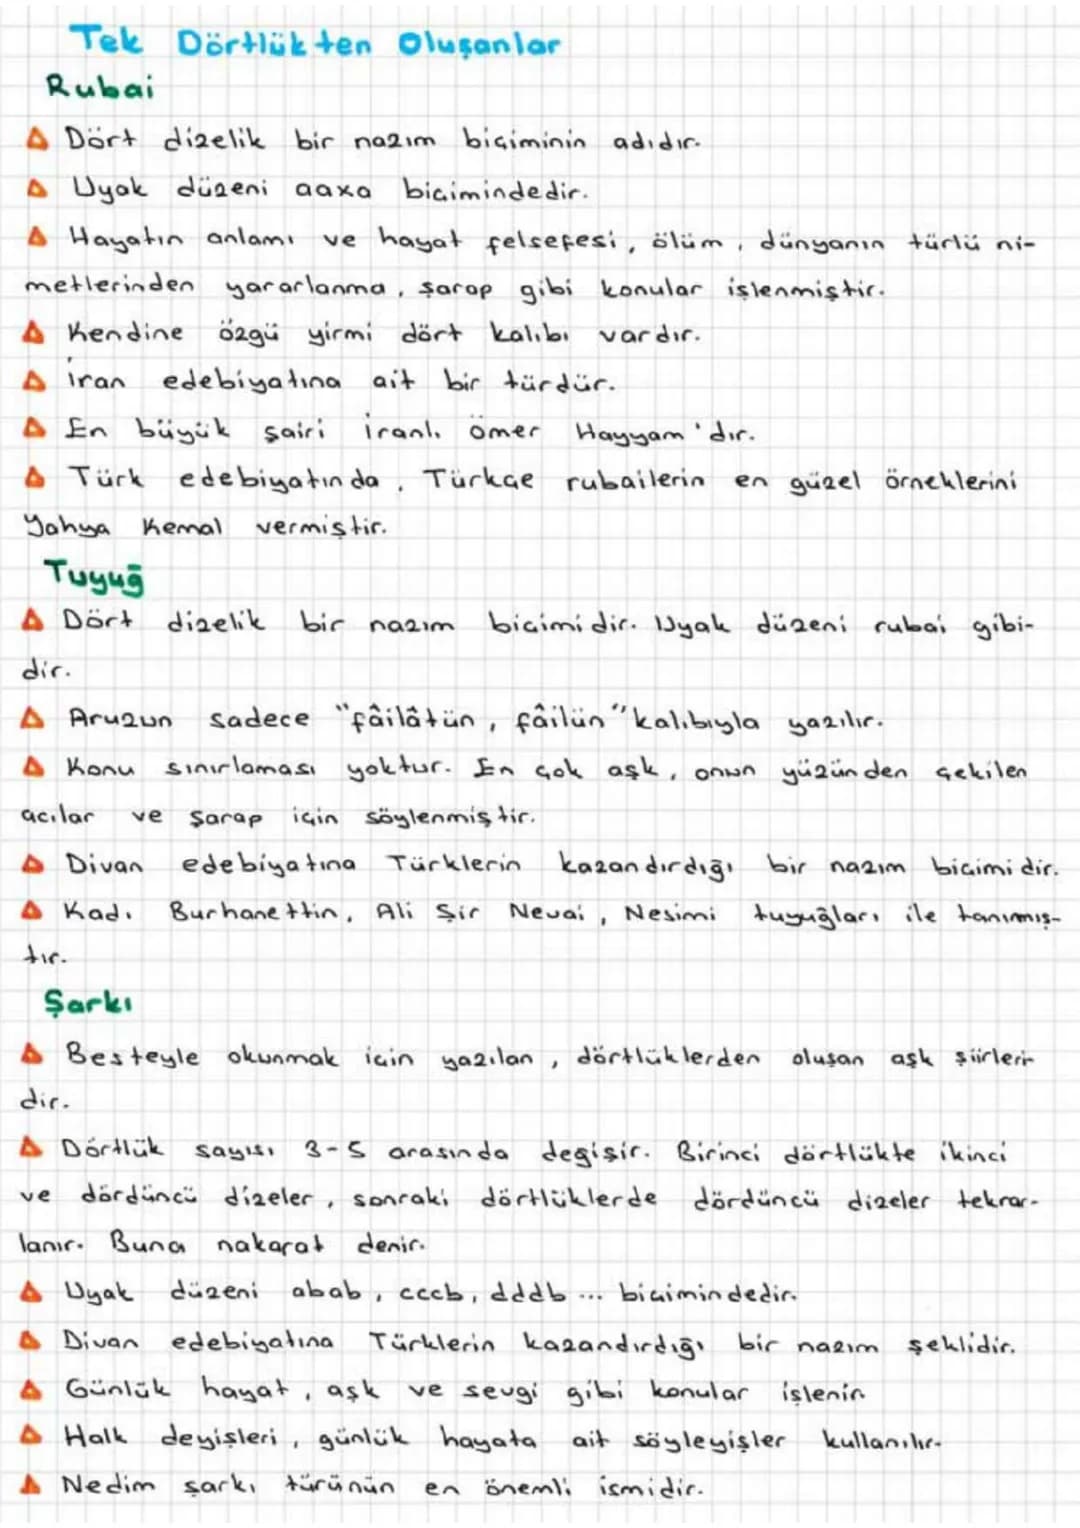 Tek Dörtlükten Oluşanlar
Rubai
Dört dizelik bir nazım biçiminin adıdır.
Uyak düzeni aaxa biçimindedir.
Hayatın anlamı ve hayat felsefesi, ölüm, dünyanın türlü ni-
metlerinden yararlanma, şarap gibi konular işlenmiştir.
Kendine özgü yirmi dört kalıbı vardır.
İran edebiyatına ait bir türdür.
En büyük şairi İranlı Ömer Hayyam'dır.
Türk edebiyatında, Türkçe rubailerin en güzel örneklerini
Yahya Kemal vermiştir.
Tuyuğ
Dört dizelik bir nazım biçimidir. Uyak düzeni rubai gibi-
dir.
Aruzun sadece "fâilâtün, fâilün" kalıbıyla yazılır.
Konu sınırlaması yoktur. En çok aşk, onun yüzünden çekilen
acılar ve şarap için söylenmiştir.
Divan edebiyatına Türklerin kazandırdığı bir nazım biçimidir.
Kadı Burhanettin, Ali Şir Nevai, Nesimi tuyuğları ile tanınmış-
tır.
Şarkı
Besteyle okunmak için yazılan, dörtlüklerden oluşan aşk şiirleri-
dir.
Dörtlük sayısı 3-5 arasında değişir. Birinci dörtlükte ikinci
ve dördüncü dizeler, sonraki dörtlüklerde dördüncü dizeler tekrar-
lanır. Buna nakarat denir.
Uyak düzeni abab, cccb, dddb ... biçimindedir.
Divan edebiyatına Türklerin kazandırdığı bir nazım şeklidir.
Günlük hayat, aşk ve sevgi gibi konular işlenir.
Halk deyişleri, günlük hayata ait söyleyişler kullanılır.
Nedim şarkı türünün en önemli ismidir.